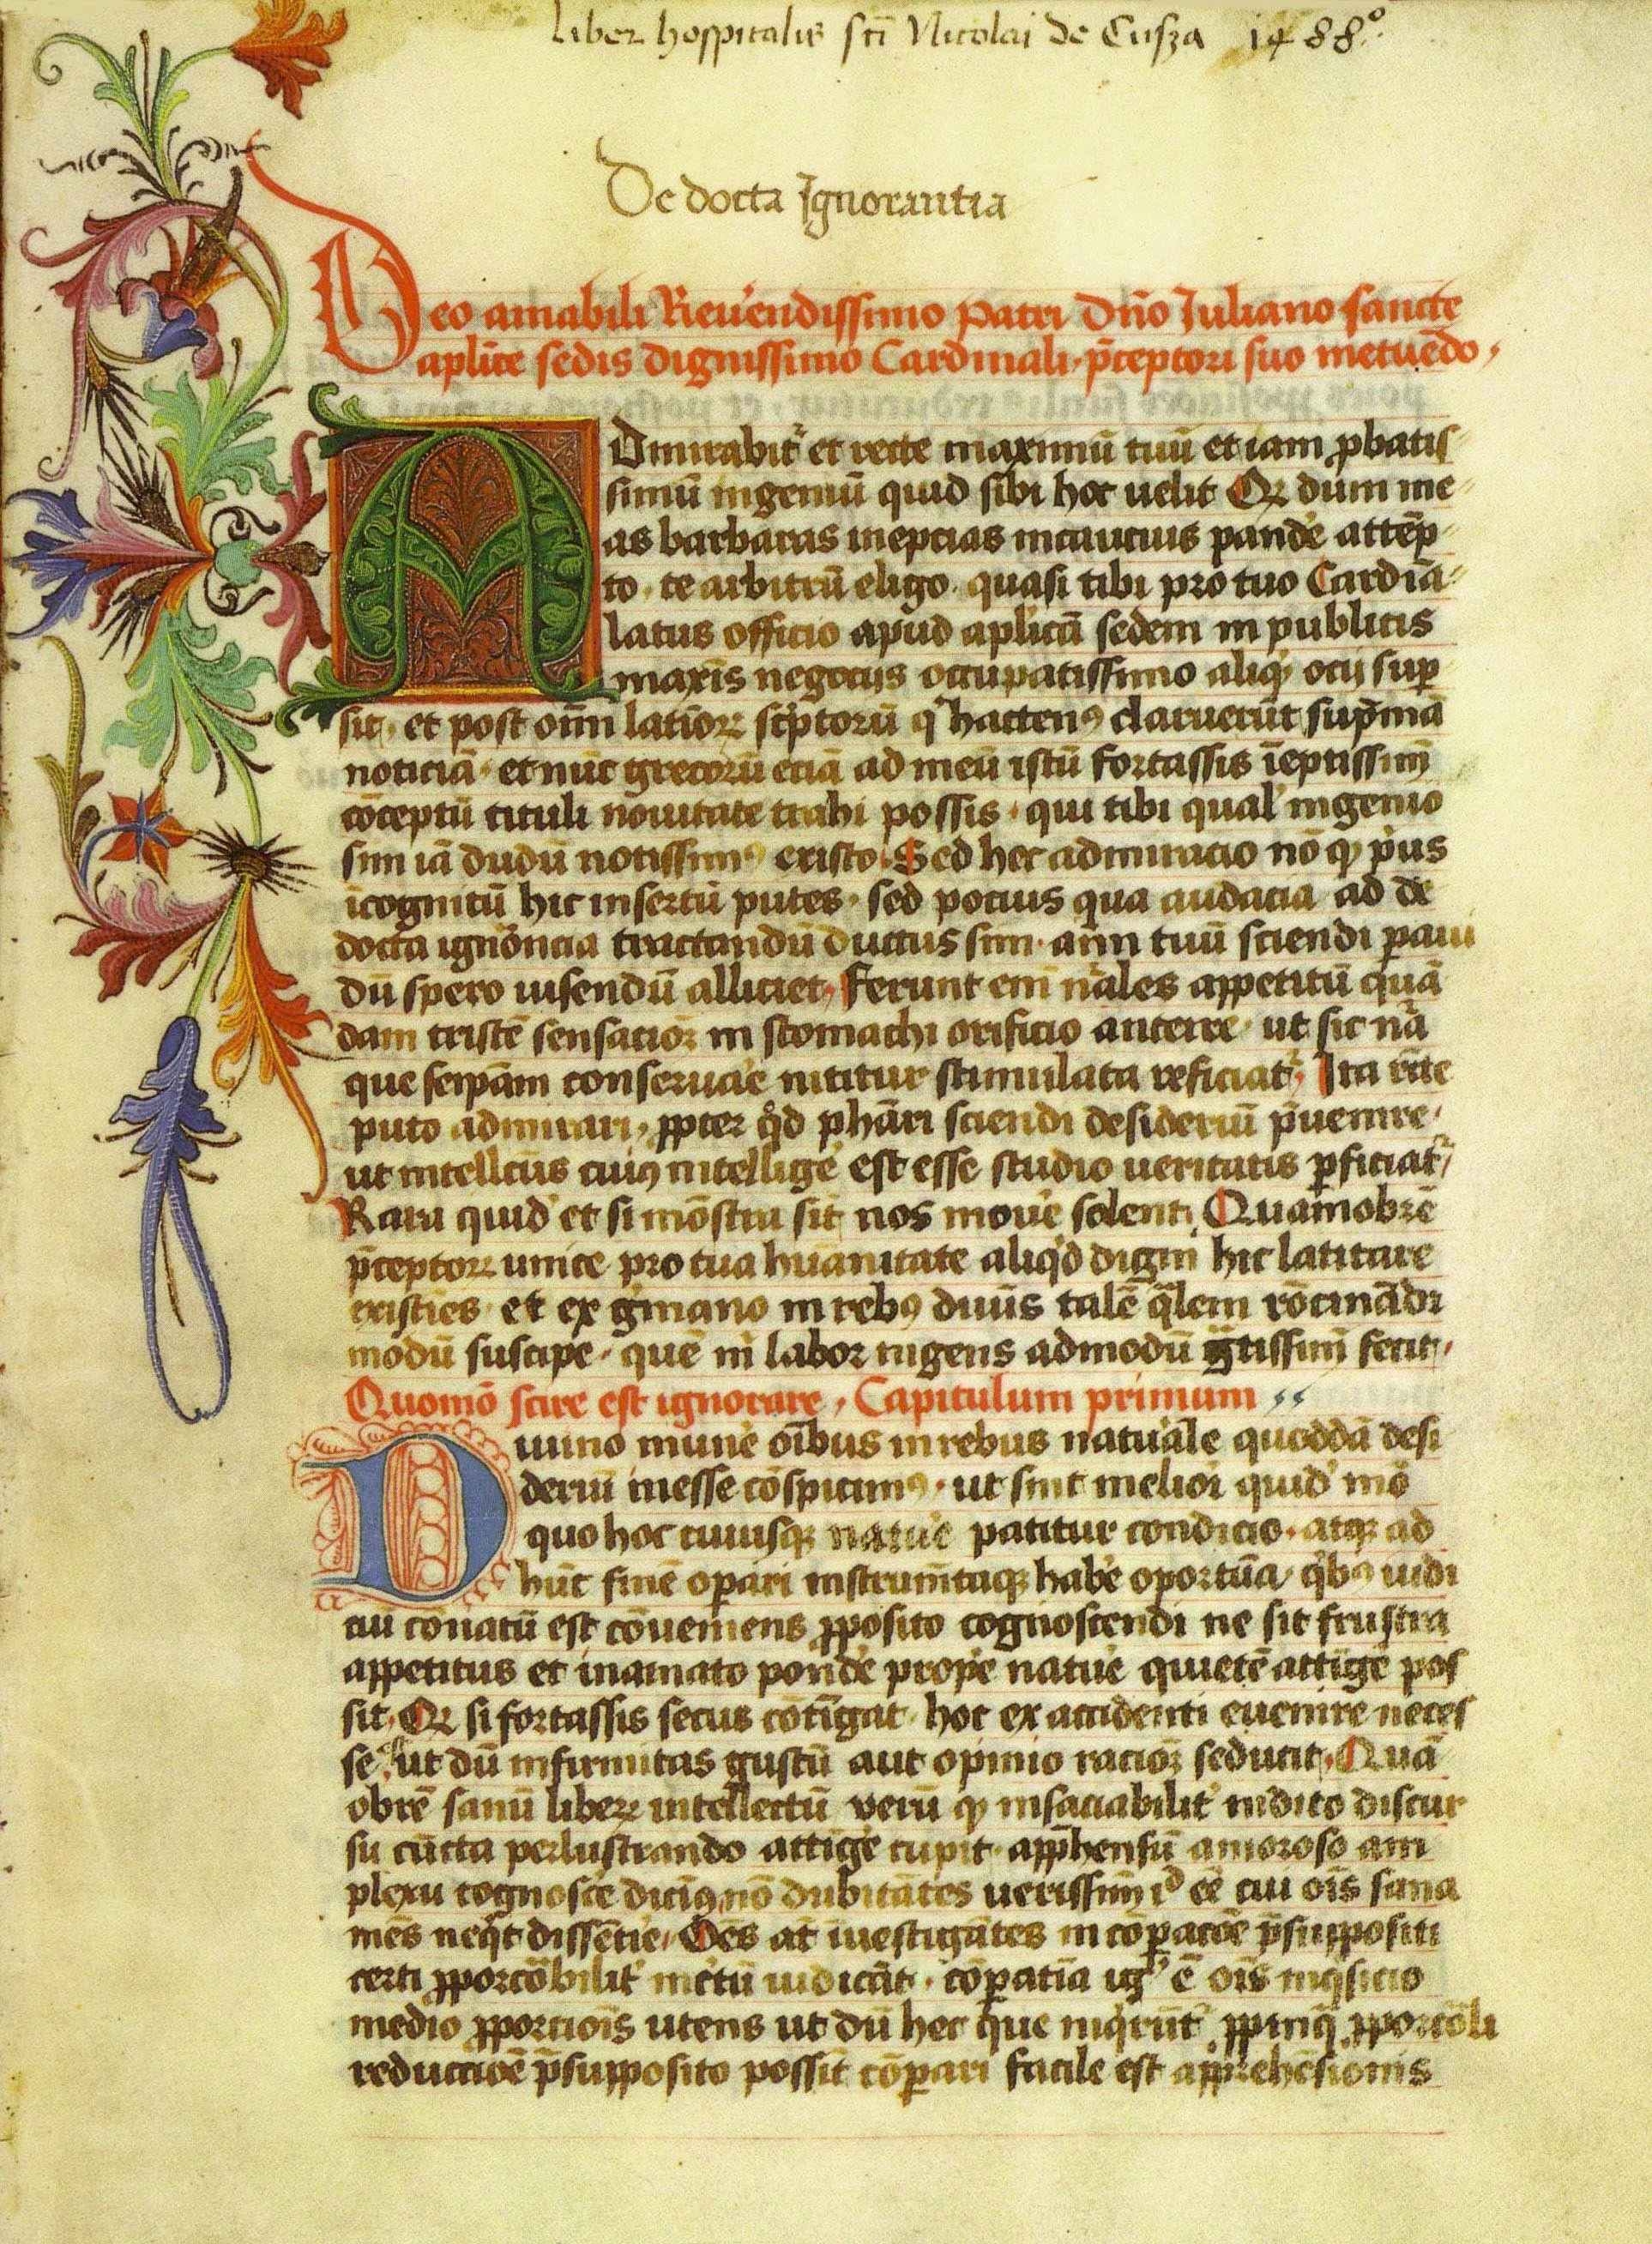 liber hospitalis sc̄i Nicolai de Cusza 1488°
De docta Ignorantia
Deo amabili Reuerendissimo Patri Dn̄o Iuliano sancte
aplīce sedis dignissimo Cardinali p̄ceptori suo metuēdo
ADmirabit᷑ et recte maximū tuū et iam ꝓbatis
simū ingeniū quid sibi hoc uelit Qꝛ dum me
as barbaras inepcias incautius pandē attēp
to te arbitrū eligo quasi tibi pro tuo Cardīa
latus officio apud aplicā sedem in publicis
maxīs negocijs occupatissimo aliqͥ ocij suꝑ
sit et post oīm latīoꝝ scͥptorū qͥ hactenꝰ claruerūt supͣmā
noticiā et nūc grecorū eciā ad meū istū fortassis īeptissimū
cōceptū tituli nouitate trahi possis qui tibi qualͥ ingenio
sim iā dudū notissimꝰ existo Sed hec admiracio nō qꝫ pͥus
īcognitū hic insertū putes sed pocius qua audacia ad de
docta ignorācia tractandū ductus sim aīm tuū sciendi ꝑaui
dū spero uisendū alliciet Ferunt em̄ nāles appetitū quā
dam tristē sensacioꝝ in stomachi orificio anteire ut sic nā
que seipām conseruare nititur stimulata reficiat᷑ Ita rēte
puto admirari ꝓpter qͦd phāri sciendi desideriū p̄uenire
ut intellcūs cuiꝰ intelligē est esse studio ueritatis ꝑficiat᷑
Rara quidē et si mōstra sīt nos mouē solent Quamobrē
p̄ceptoꝝ unice pro tua hūanitate aliqͥd digni hic latitare
existies et ex gͥmano in rebꝰ diuīs talē qͣlem rōcinādi
modū suscipe quē m̄ labor ingens admodū gͣtissimū fecit
Quomō scire est ignorare Capitulum primum
Diuino munē oībus in rebus naturale quoddā desi
deriū inesse cōspicimꝰ ut sint meliori quidē mō
quo hoc cuiusqꝫ natue patitur condicio atqꝫ ad
hūc finē operari instrumētaqꝫ habē oportūa qͥbꝰ iudi
ciū cōnatū est cōueniens ꝓposito cognoscendi ne sit frustra
appetitus et in amato pondē proprē natue quietē attīgē pos
sit Qꝛ si fortassis secus cōtīgat hoc ex accidenti euenire neces
se ē ut dū infirmitas gustū aut opinio racioꝝ seducit Quā
obrē sanū liberꝝ intellectū verū qꝫ insaciabilit̄ indito discur
su cūcta perlustrando attīgē cupit apphensū amoroso am
plexu cognoscē dicimꝰ nō dubitātes uerissimū id ēē cui oīs sana
mēs neqͥt dissētire Oēs at̄ īuestigātes in cōꝑacōe p̄suppositi
certi ꝓporcōbilit̄ incͬtū iudicāt cōꝑatīa igͬ ē oīs inqͥsicio
medio ꝓporciois utens ut dū hec que inqͥrūt᷑ ꝓpinqͣ ꝓporcōli
reduccioē p̄supposito possīt cōꝑari facile est apprehēsionis